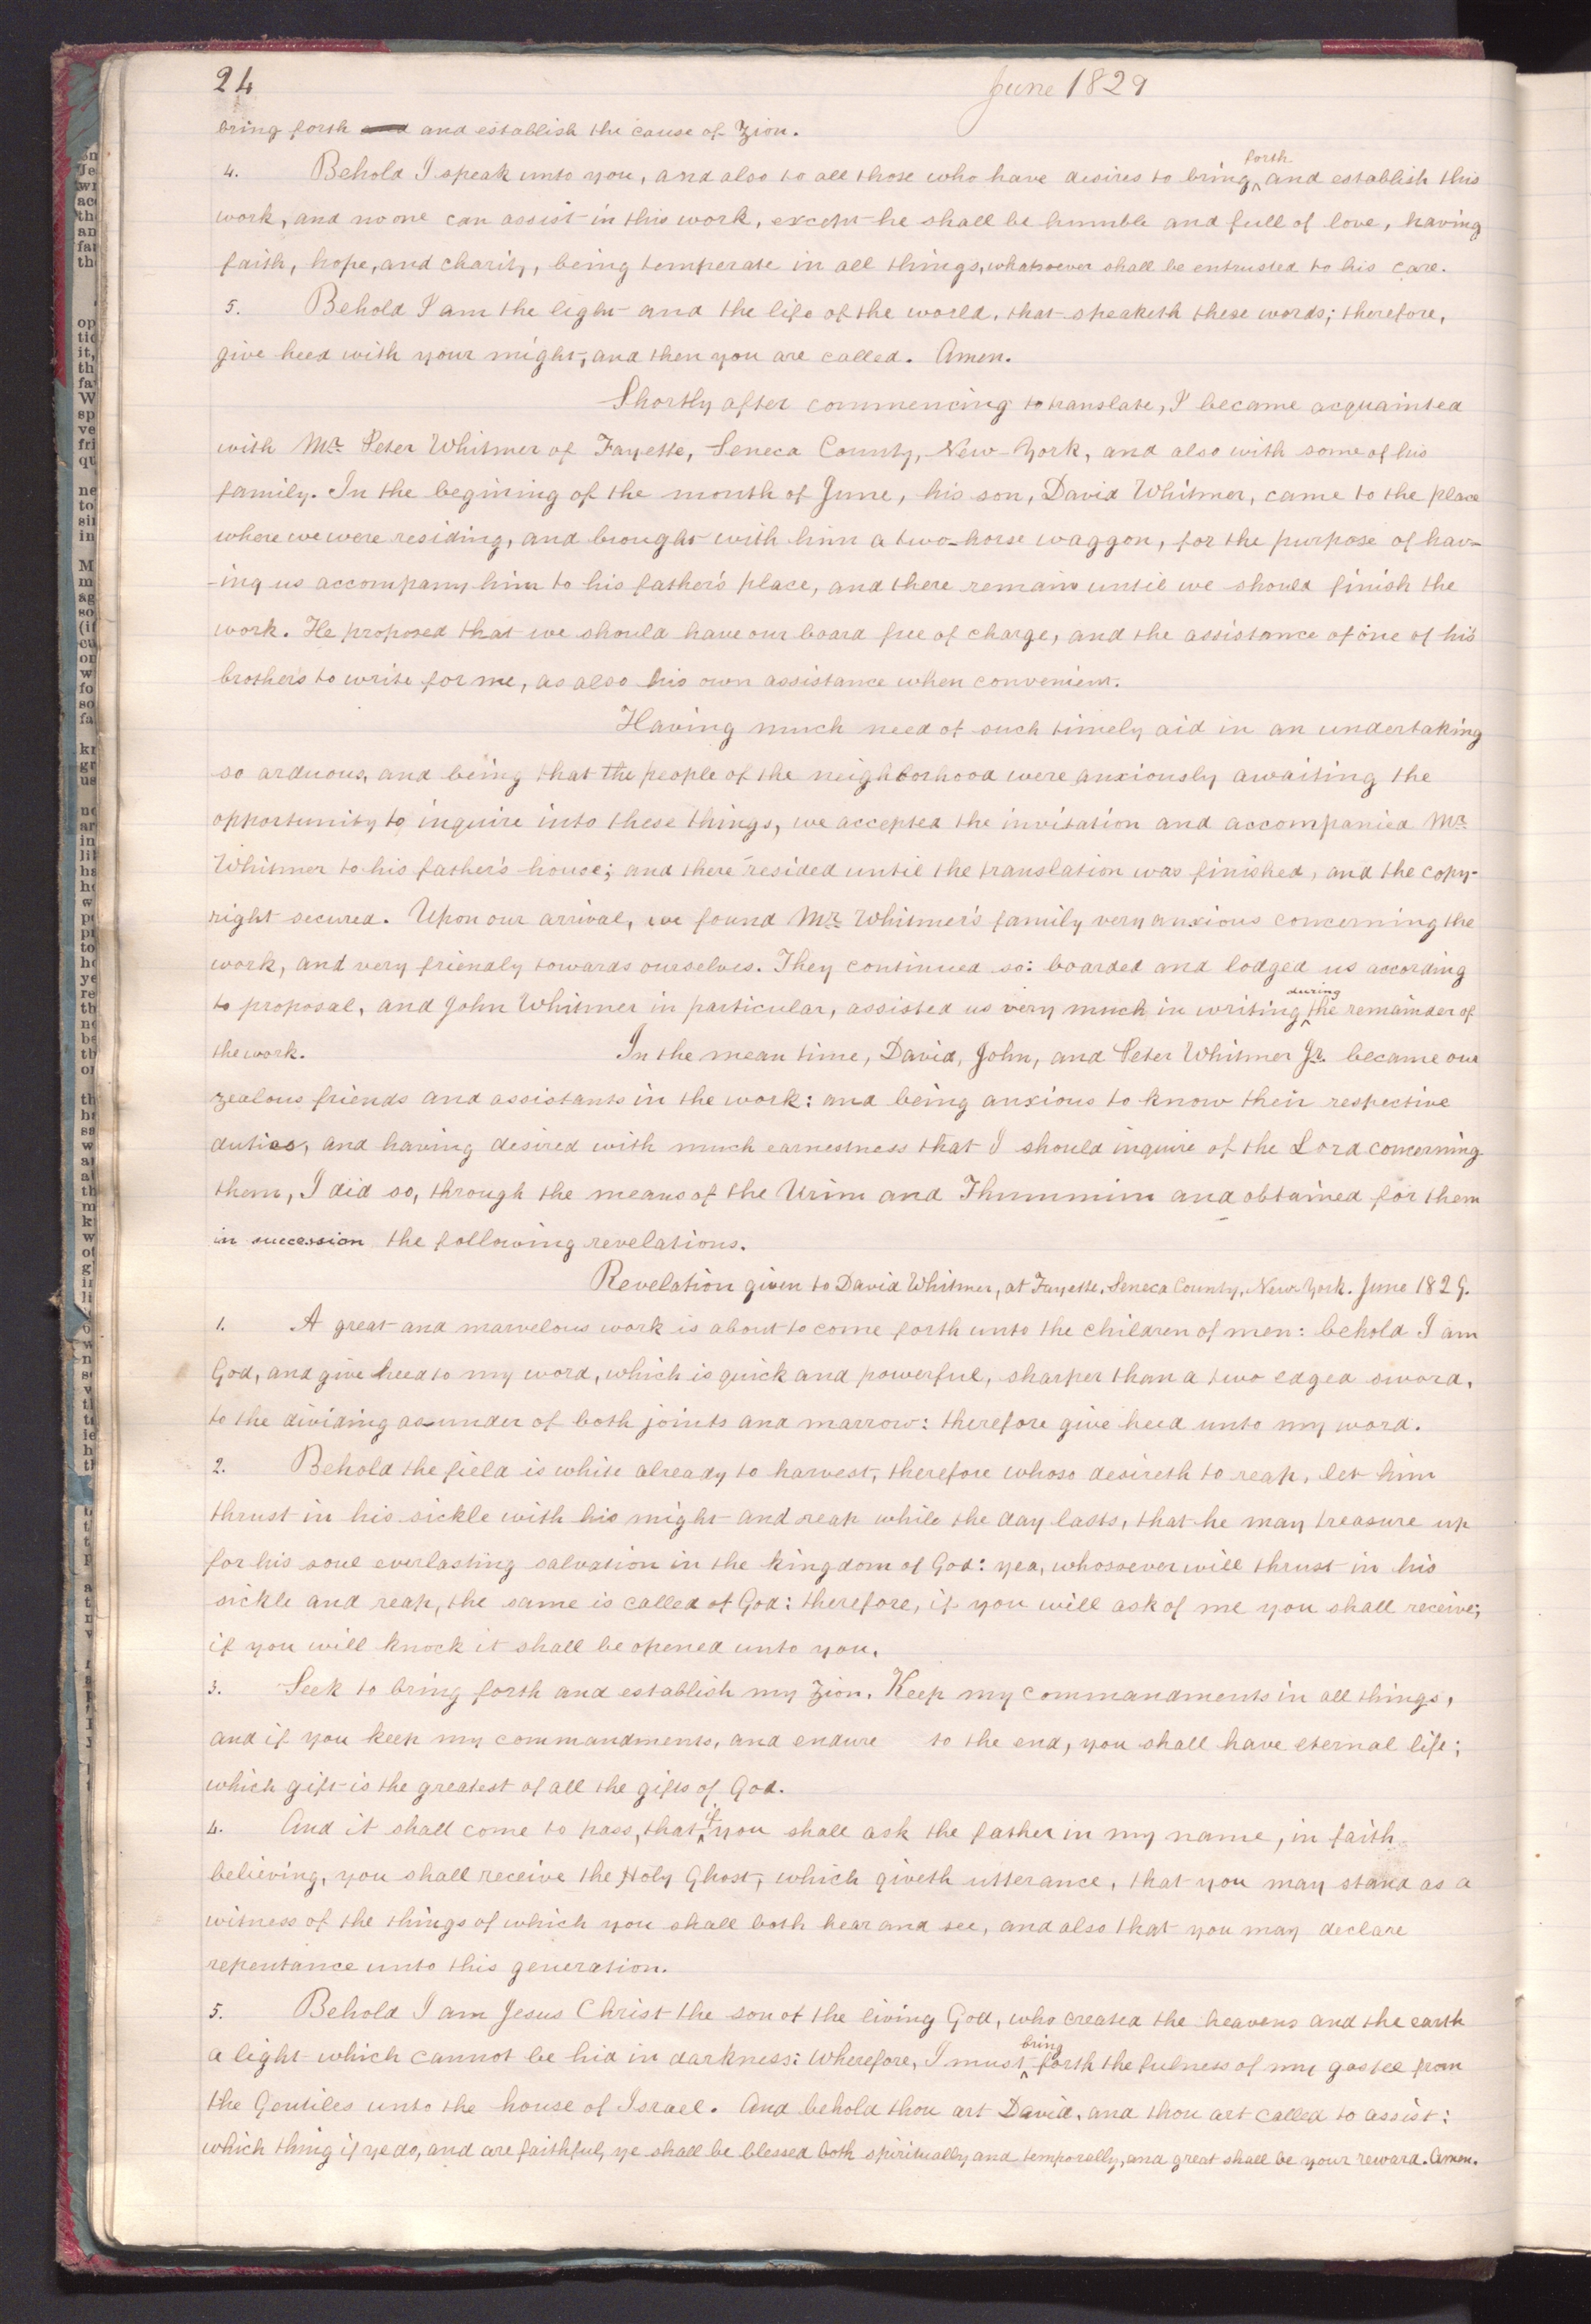 24
June 1829
bring forth and and establish the cause of Zion.
forth
4. Behold I speak unto you, and also to all those who have desires to bring ^ and establish this
work, and no one can assist in this work, except he shall be humble and full of love, having
faith, hope, and charity, being temperate in all things, whatsoever shall be entrusted to his care.
5. Behold I am the light and the life of the world, that speaketh these words; therefore,
give heed with your might, and then you are called. Amen.
Shortly after commencing to translate, I became acquainted
with Mr. Peter Whitmer of Fayette, Seneca County, New-York, and also with some of his
family. In the begining of the month of June, his son, David Whitmer, came to the place
where we were residing, and brought with him a two-horse waggon, for the purpose of hav-
-ing us accompany him to his father's place, and there remain until we should finish the
work. He proposed that we should have our board free of charge, and the assistance of one of his
brothers to write for me, as also his own assistance when convenient.
Having much need of such timely aid in an undertaking
so arduous, and being that the people of the neighborhood were anxiously awaiting the
opportunity to inquire into these things, we accepted the invitation and accompanied Mr.
Whitmer to his father's house; and there resided until the translation was finished, and the copy-
right secured. Upon our arrival, we found Mr. Whitmer's family very anxious concerning the
work, and very friendly towards ourselves. They continued so: boarded and lodged us according
during
to proposal, and John Whitmer in particular, assisted us very much in writing ^ the remainder of
the work. In the mean time, David, John, and Peter Whitmer Jr. became our
zealous friends and assistants in the work: and being anxious to know their respective
duties, and having desired with much earnestness that I should inquire of the Lord concerning
them, I did so, through the means of the Urim and Thummim and obtained for them
in succession the following revelations.
Revelation given to David Whitmer, at Fayette, Seneca County, New-York. June 1829.
1. A great and marvelous work is about to come forth unto the children of men: behold I am
God, and give heed to my word, which is quick and powerful, sharper than a two edged sword,
to the dividing asunder of both joints and marrow: therefore give heed unto my word.
2. Behold the field is white already to harvest, therefore whoso desireth to reap, let him
thrust in his sickle with his might and reap while the day lasts, that he may treasure up
for his soul everlasting salvation in the kingdom of God: yea, whosoever will thrust in his
sickle and reap, the same is called of God: therefore, if you will ask of me you shall receive;
if you will knock it shall be opened unto you.
3. Seek to bring forth and establish my Zion. Keep my commandments in all things,
and if you keep my commandments, and endure to the end, you shall have eternal life;
which gift is the greatest of all the gifts of God.
if
4. And it shall come to pass, that ^ you shall ask the father in my name, in faith
believing, you shall receive the Holy Ghost, which giveth utterance, that you may stand as a
witness of the things of which you shall both hear and see, and also that you may declare
repentance unto this generation.
5. Behold I am Jesus Christ the son of the living God, who created the heavens and the earth
bring
a light which cannot be hid in darkness: Wherefore, I must ^ forth the fulness of my gospel from
the Gentiles unto the house of Israel. And behold thou art David, and thou art called to assist:
which thing if ye do, and are faithful, ye shall be blessed both spiritually and temporally, and great shall be your reward. Amen.